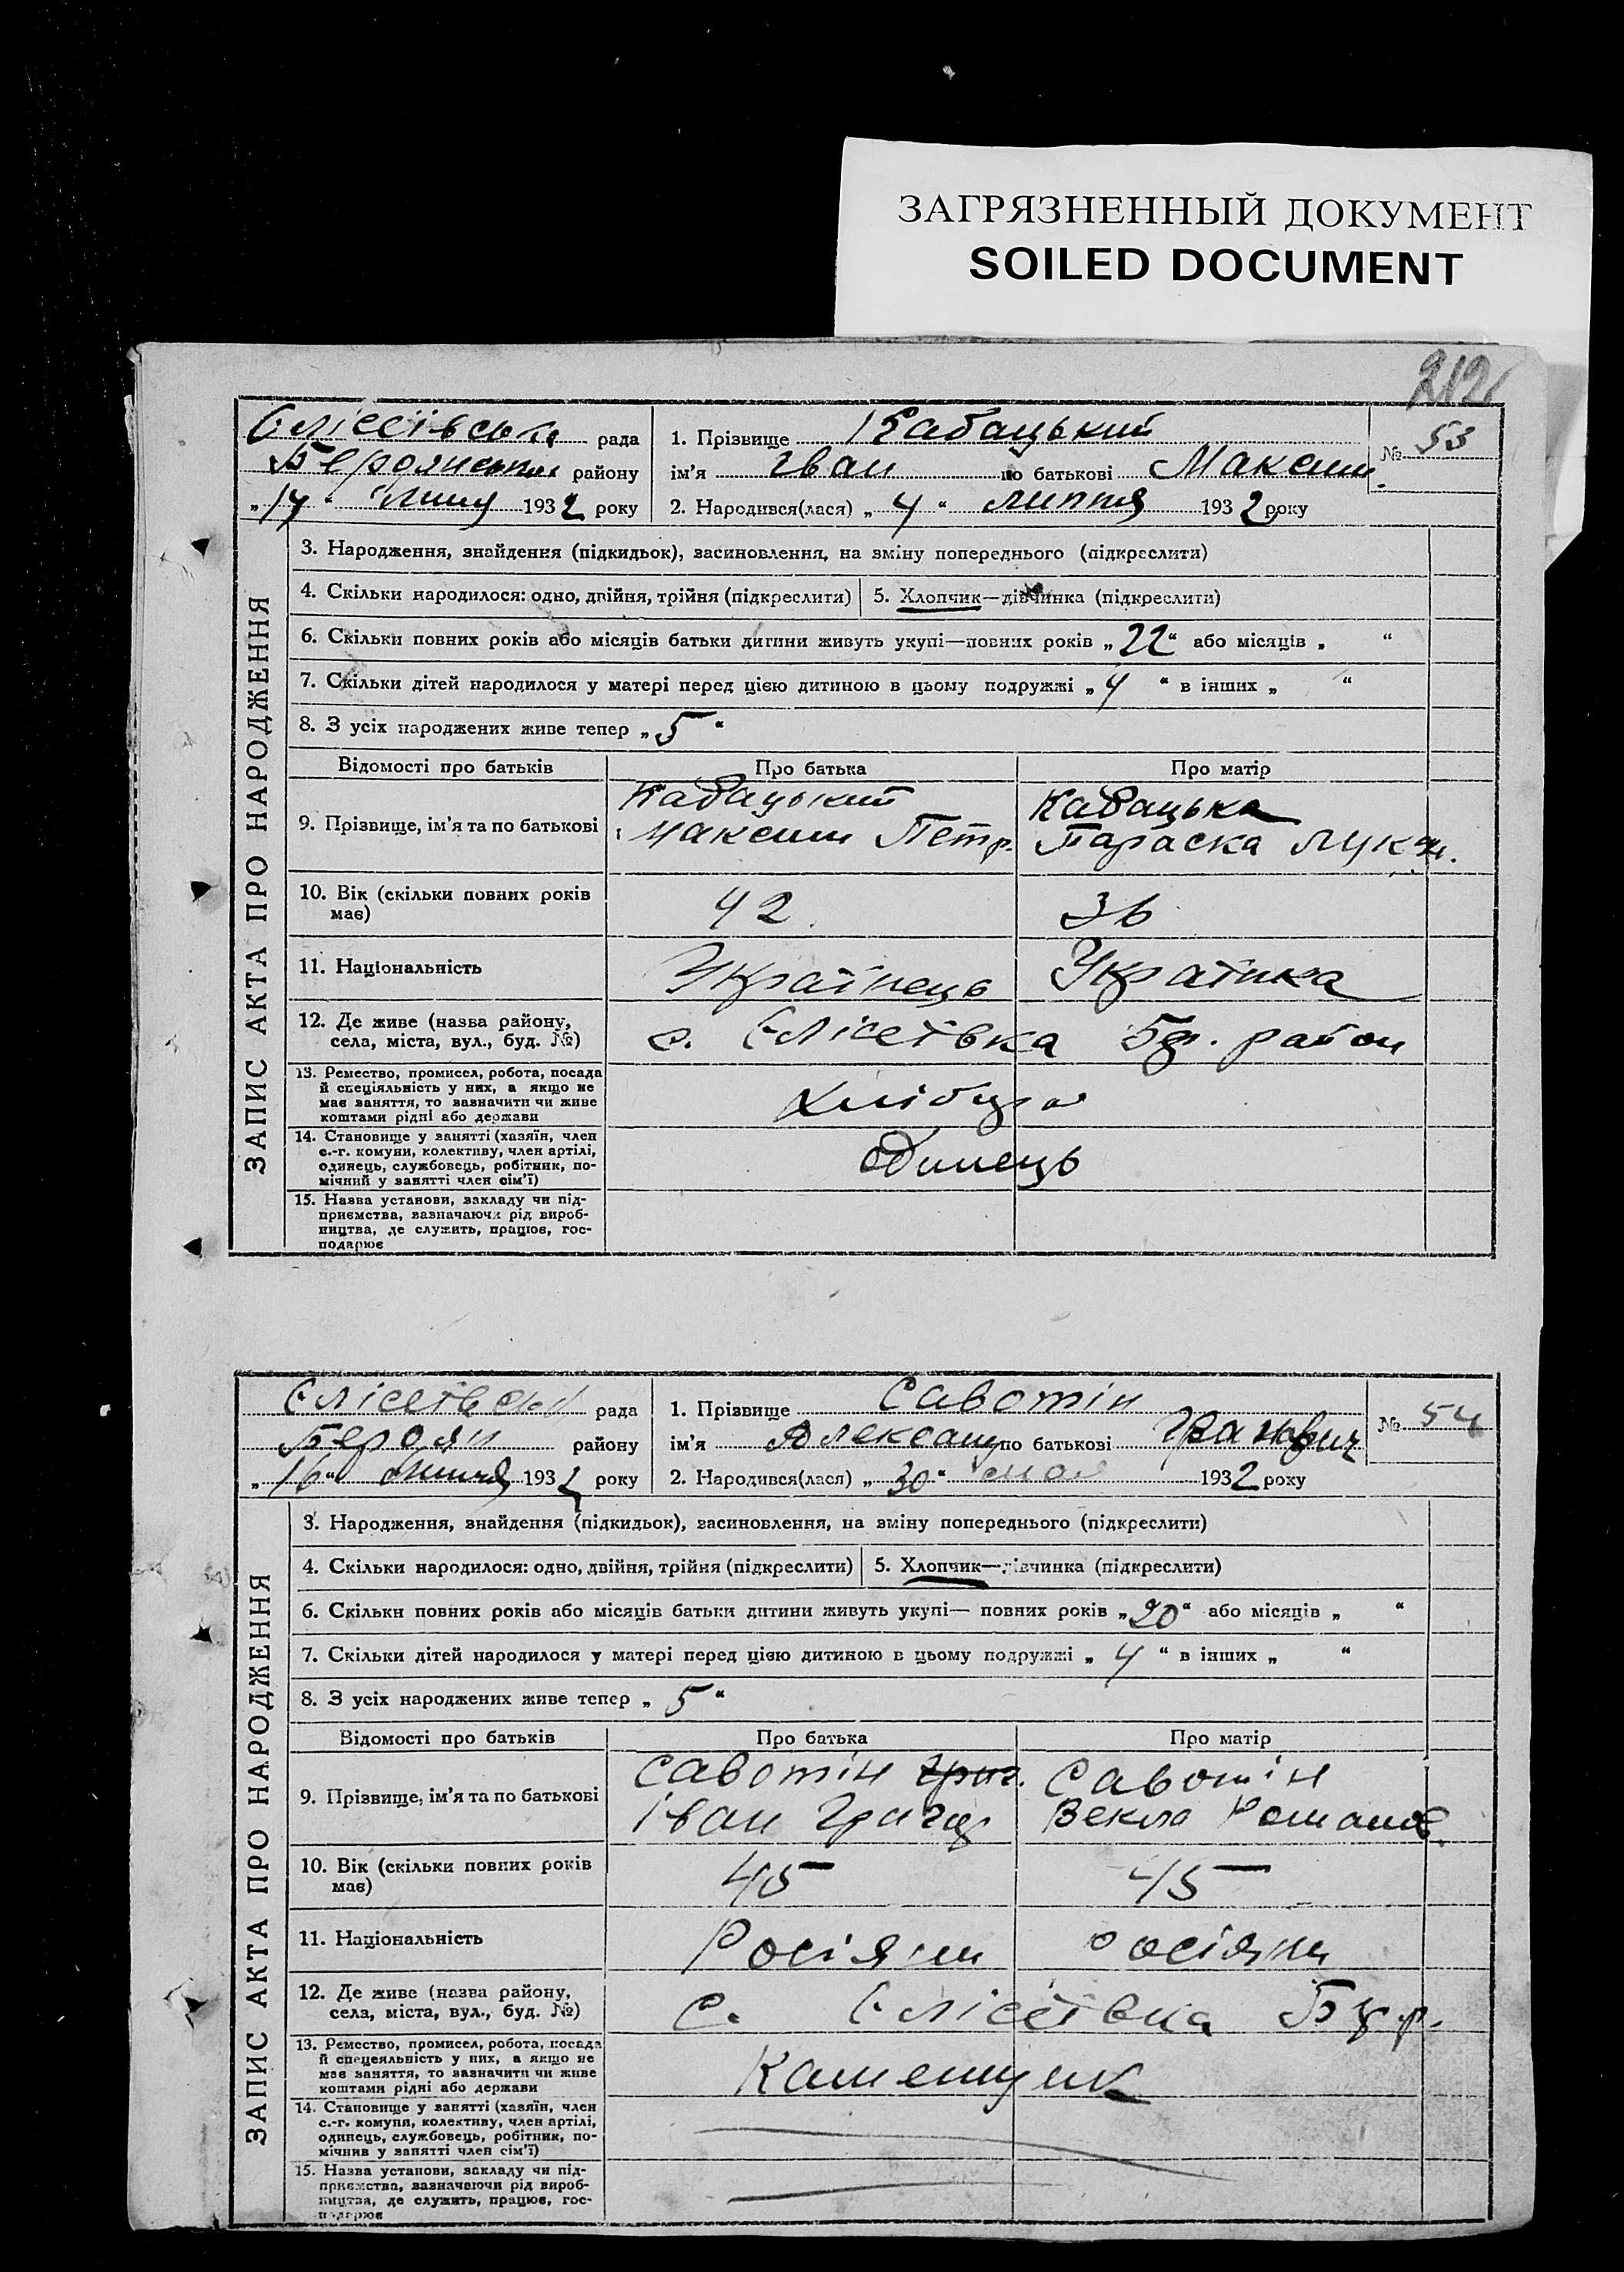 ЗАГРЯЗНЕННЫЙ ДОКУМЕНТ
SOILED DOCUMENT
212
Єлісеївська рада
Бердянськ району
„14“ липня 1932 року
1. Прізвище Кабацький
ім'я Іван по батькові Максим.
2. Народився(лася) „4“ липня 1932 року
№ 53
ЗАПИС АКТА ПРО НАРОДЖЕННЯ
3. Народження, знайдення (підкидьок), засиновлення, на зміну попереднього (підкреслити)
4. Скільки народилося: одно, двійня, трійня (підкреслити)
5. Хлопчик—дівчинка (підкреслити)
6. Скільки повних років або місяців батьки дитини живуть укупі—повних років „22“ або місяців „ “
7. Скільки дітей народилося у матері перед цією дитиною в цьому подружжі „4“ в інших „ “
8. З усіх народжених живе тепер „5“
Відомості про батьків Про батька Про матір
9. Прізвище, ім'я та по батькові
Кабацький
Максим Петр.
Кабацька
Параска Лук'ян.
10. Вік (скільки повних років
має)
42 36
11. Національність Українець Українка
12. Де живе (назва району,
села, міста, вул., буд. №)
с. Єлісеївка Бд. район
13. Ремество, промисел, робота, посада
й спеціяльність у них, а якщо не
має заняття, то зазначити чи живе
коштами рідні або держави
14. Становище у занятті (хазяїн, член
с.-г. комуни, колективу, член артілі,
одинець, службовець, робітник, по-
мічний у занятті член сім'ї)
одинець
15. Назва установи, закладу чи під-
приємства, зазначаючи рід вироб-
ництва, де служить, працює, гос-
подарює
Єлісеївська рада
Бердян району
„16“ липня 1932 року
1. Прізвище Савотін
ім'я Александ по батькові
2. Народився(лася) „30“ мая 1932 року
№ 54
ЗАПИС АКТА ПРО НАРОДЖЕННЯ
3. Народження, знайдення (підкидьок), засиновлення, на зміну попереднього (підкреслити)
4. Скільки народилося: одно, двійня, трійня (підкреслити)
5. Хлопчик—дівчинка (підкреслити)
6. Скільки повних років або місяців батьки дитини живуть укупі— повних років „20“ або місяців „ “
7. Скільки дітей народилося у матері перед цією дитиною в цьому подружжі „4“ в інших „ “
8. З усіх народжених живе тепер „5“
Відомості про батьків Про батька Про матір
9. Прізвище, ім'я та по батькові
Савотін Григ.
Іван Григор
Савотін
Векла Романов.
10. Вік (скільки повних років
має)
45 45
11. Національність Росіянин росіянн
12. Де живе (назва району,
села, міста, вул., буд. №)
с. Єлісеївка Б др.
13. Ремество, промисел, робота, посада
й спецеяльність у них, а якщо не
має заняття, то зазначити чи живе
коштами рідні або держави
Каменщик
14. Становище у занятті (хазяїн, член
с.-г. комуни, колективу, член артілі,
одинець, службовець, робітник, по-
мічник у занятті член сім'ї)
15. Назва установи, закладу чи під-
приємства, зазначаючи рід вироб-
ництва, де служить, працює, гос-
подарює